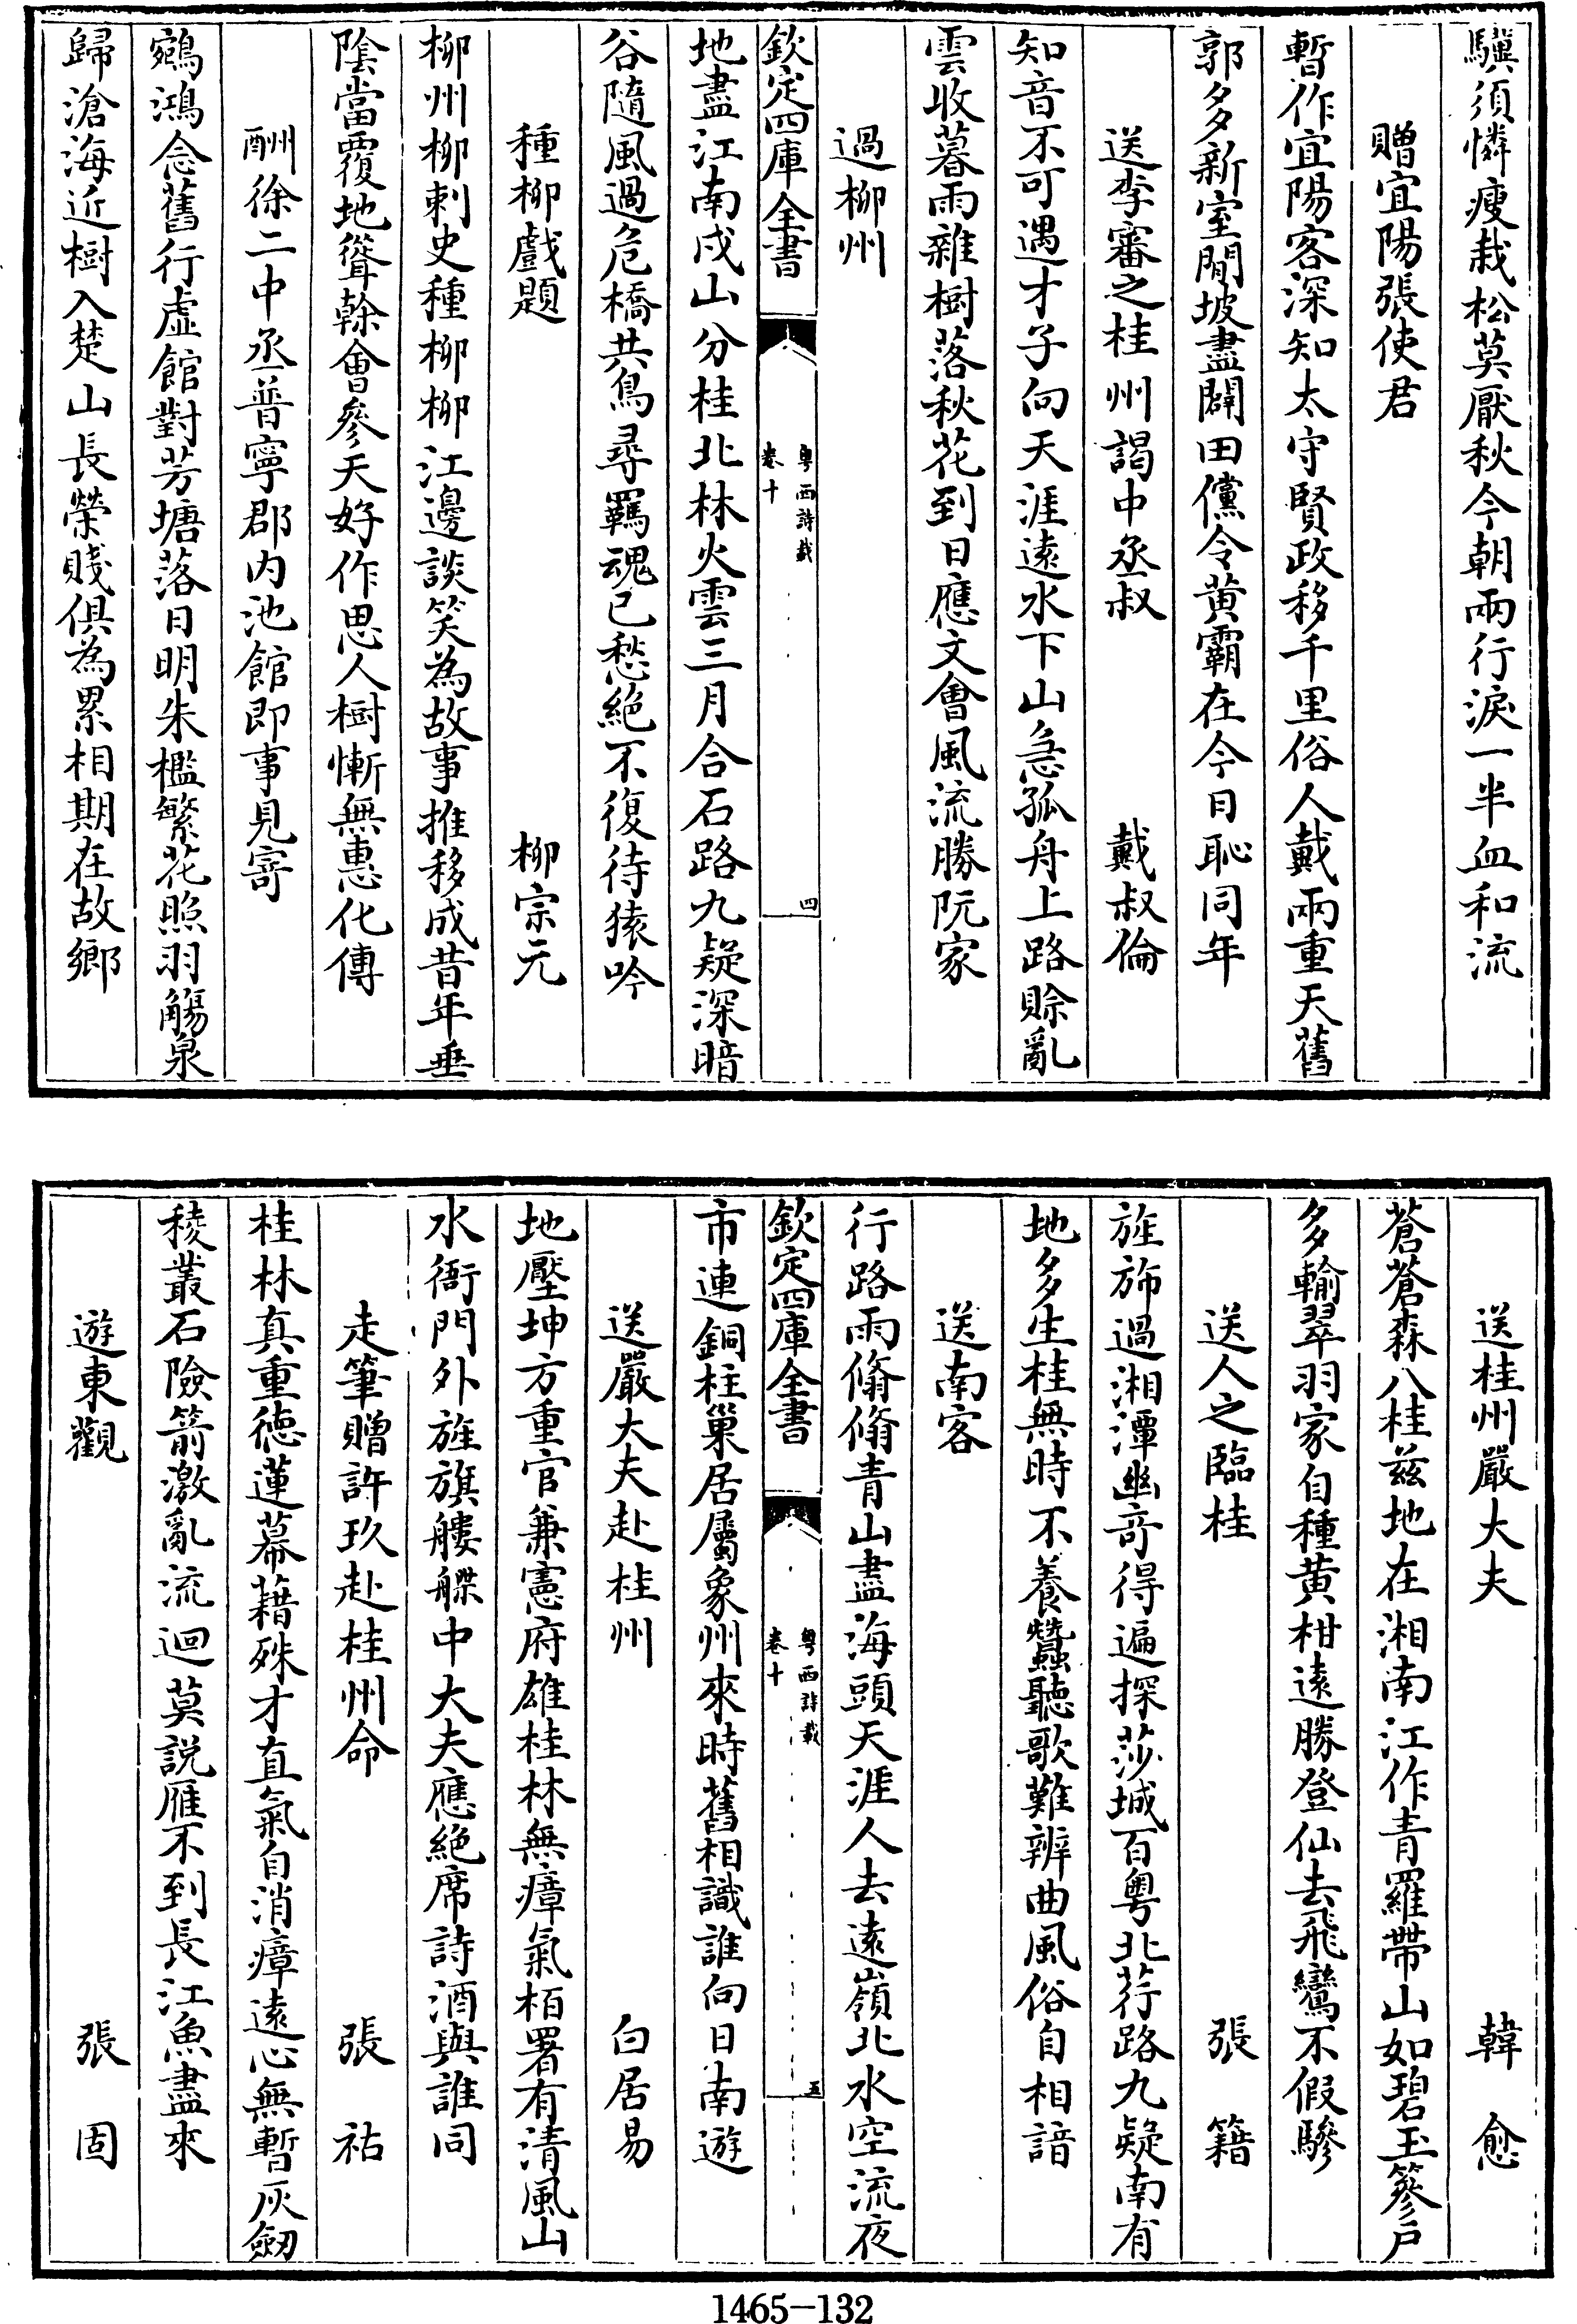 驥須憐瘦栽松莫厭秋今朝兩行淚一半血和流
贈宜陽張使君
暫作宜陽客深知太守賢政移千里俗人戴兩重天舊
郭多新室閒坡盡闢田儻令黄霸在今日恥同年
送李審之桂州謁中丞叔　戴叔倫
知音不可遇才子向天涯遠水下山急孤舟上路賒亂
雲收暮雨雜樹落秋花到日應文會風流勝阮家
過柳州
欽定四庫全書　粤西詩載　卷十　四
地盡江南戍山分桂北林火雲三月合石路九疑深暗
谷隨風過危橋共鳥尋羈魂已愁絶不復待猿吟
種柳戲題　柳宗元
柳州柳刺史種柳柳江邊談笑為故事推移成昔年垂
陰當覆地聳幹會參天好作思人樹慚無惠化傳
酬徐二中丞普寧郡内池館即事見寄
鵷鴻念舊行虚館對芳塘落日明朱檻繁花照羽觴泉
歸滄海近樹入楚山長榮賤俱為累相期在故鄉
送桂州嚴大夫　韓愈
蒼蒼森八桂兹地在湘南江作青羅帶山如碧玉篸戸
多輸翠羽家自種黄柑遠勝登仙去飛鸞不假驂
送人之臨桂　張籍
旌斾過湘潭幽奇得遍探莎城百粤北行路九疑南有
地多生桂無時不養蠶聽歌難辨曲風俗自相諳
送南客
行路雨翛翛青山盡海頭天涯人去遠嶺北水空流夜
欽定四庫全書　粤西詩載　卷十　五
市連銅柱巢居屬象州來時舊相識誰向日南遊
送嚴大夫赴桂州　白居易
地壓坤方重官兼憲府雄桂林無瘴氣栢署有清風山
水衙門外旌旗艛艓中大夫應絶席詩酒與誰同
走筆贈許玖赴桂州命　張祜
桂林真重德蓮幕藉殊才直氣自消瘴遠心無暫灰劒
稜叢石險箭激亂流迴莫説雁不到長江魚盡來
遊東觀　張固
1465-132